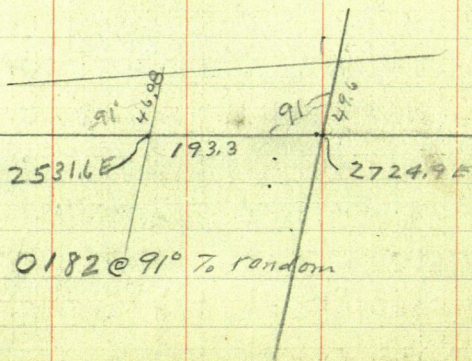 91°
46.98
91
49.6
193.3
2531.6E
2724.9E
0182 @ 91° To random